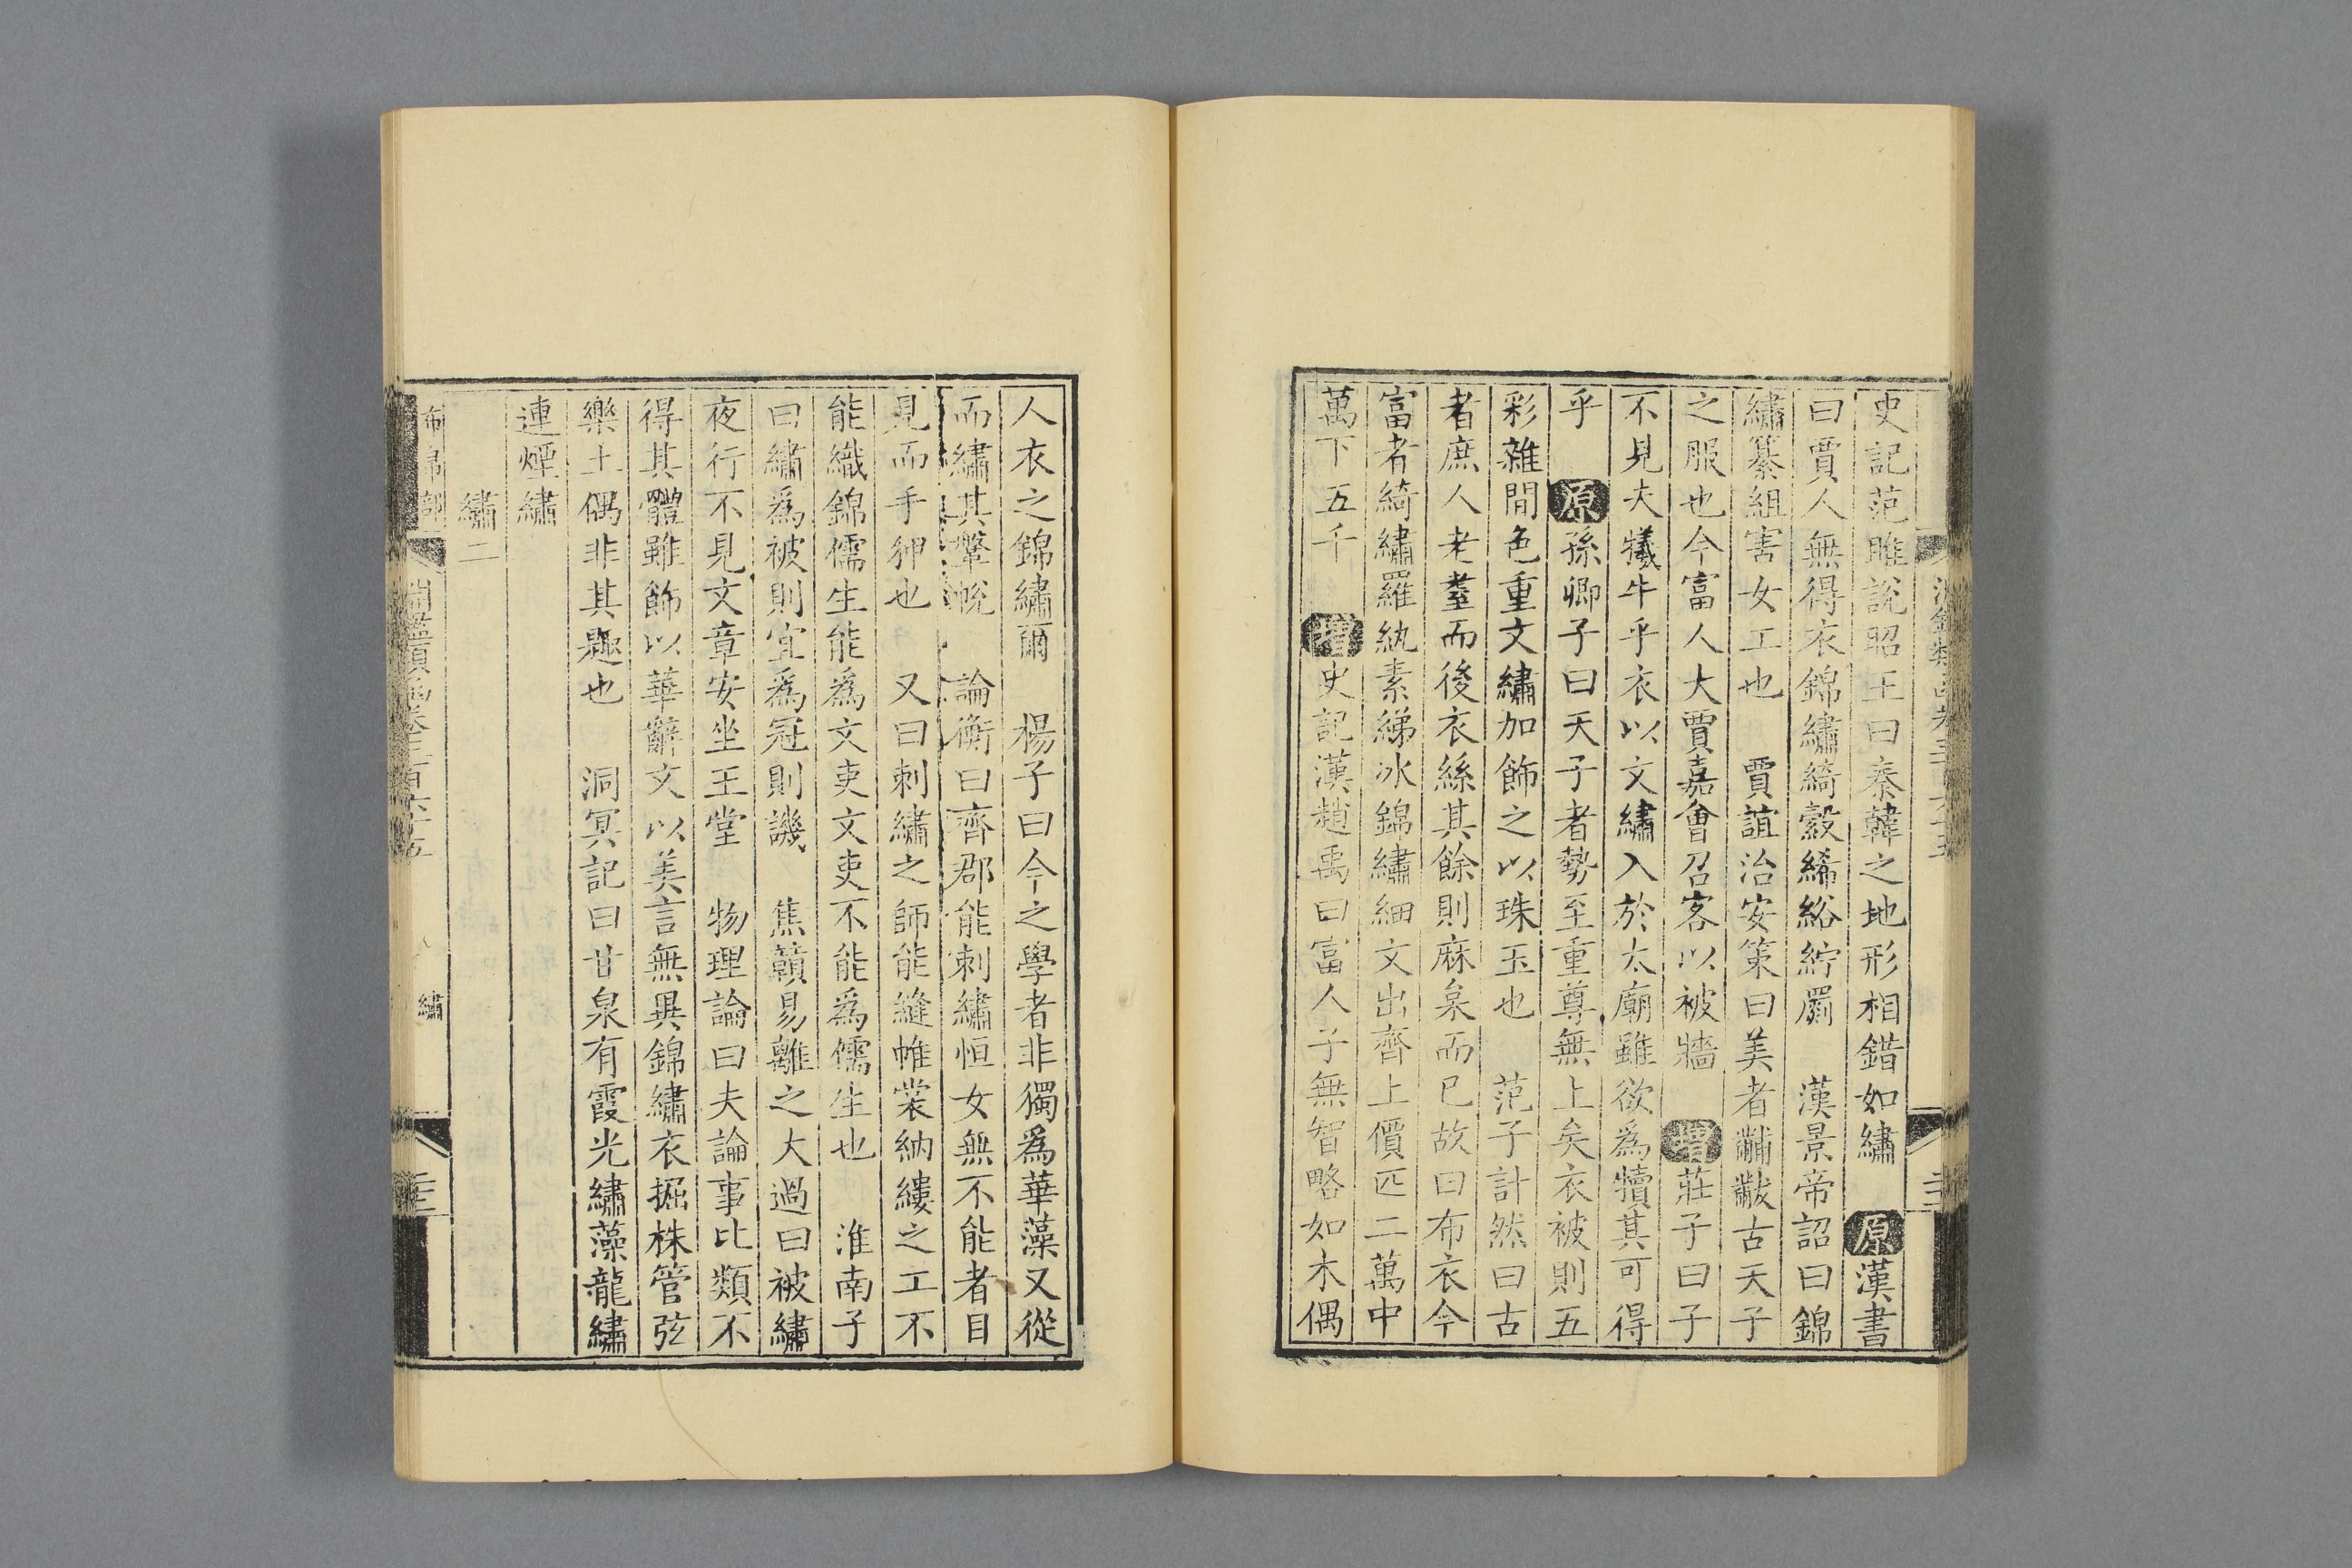 史記范雎說昭王曰秦韓之地形相錯如繡 原 漢書
曰賈人無得衣錦繡綺縠絺紵罽 漢景帝詔曰錦
繡纂組害女工也 賈誼治安策曰美者黼黻古天子
之服也今富人大賈嘉會召客以被牆 增 莊子曰子
不見夫犧牛乎衣以文繡入於太廟雖欲爲犢其可得
乎 原 孫卿子曰天子者勢至重尊無上矣衣被則五
彩雜間色重文繡加飾之以珠玉也 范子計然曰古
者庶人老耋而後衣絲其餘則麻枲而已故曰布衣今
富者綺繡羅紈素綈冰錦繡細文出齊上價匹二萬中
萬下五千 增 史記漢趙禹曰富人子無智略如木偶
人衣之錦繡爾 楊子曰今之學者非獨爲華藻又從
而繡其鞶帨 論衡曰齊郡能刺繡恒女無不能者目
見而手狎也 又曰刺繡之師能縫帷裳納縷之工不
能織錦儒生能爲文吏文吏不能爲儒生也 淮南子
曰繡爲被則宜爲冠則譏 焦贛易離之大過曰被繡
夜行不見文章安坐玉堂 物理論曰夫論事比類不
得其體雖飾以華辭文以美言無異錦繡衣掘株管弦
樂土偶非其趣也 洞冥記曰甘泉有霞光繡藻龍繡
連煙繡
繡二
布帛部
淵鑑類函卷三百六十五
繡